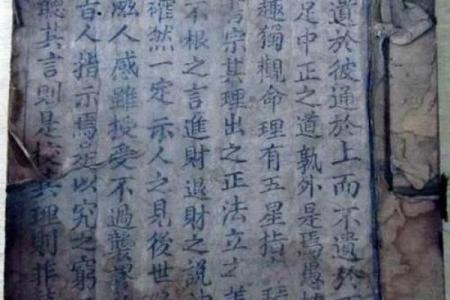 遺於彼通於上而不遺於
足中正之道孰外是焉愚
趣獨觀命理有五星指
宗其理出之正法立之
不根之言進財退財之說
確然一定示人之見後世
人感雖授受不過襲
人指示焉足以究之窮
聽其言則是校其理則非